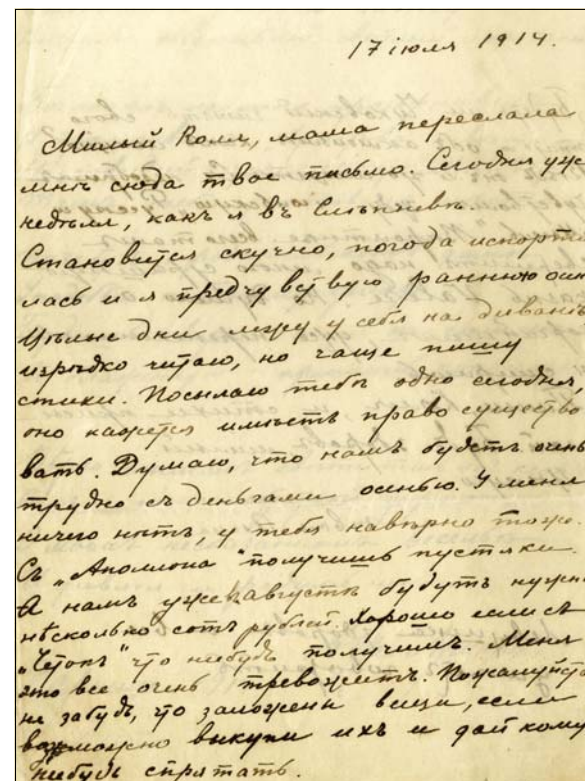 17 іюля 1914.
Милый Коля, мама переслала
мнѣ сюда твое письмо. Сегодня уже
недѣля, какъ я въ Слѣпневѣ.
Становится скучно, погода испорти
лась и я предчувствую раннюю осен
Цѣлые дни лежу у себя на диванѣ
изрѣдка читаю, но чаще пишу
стихи. Посылаю тебѣ одно сегодня,
оно кажется имѣетъ право существо
вать. Думаю, что намъ будетъ очень
трудно съ деньгами осенью. У меня
ничего нѣтъ, у тебя навѣрно тоже.
Съ „Аполлона" получишь пустяки.
А намъ уже в августѣ будутъ нужн
нѣсколько сотъ рублей. Хорошо если съ
„Четокъ" что нибудь получимъ. Меня
это все очень тревожитъ. Пожалуйста
не забудь, что заложены вещи, если
возможно выкупи ихъ и дай кому
нибудь спрятать.